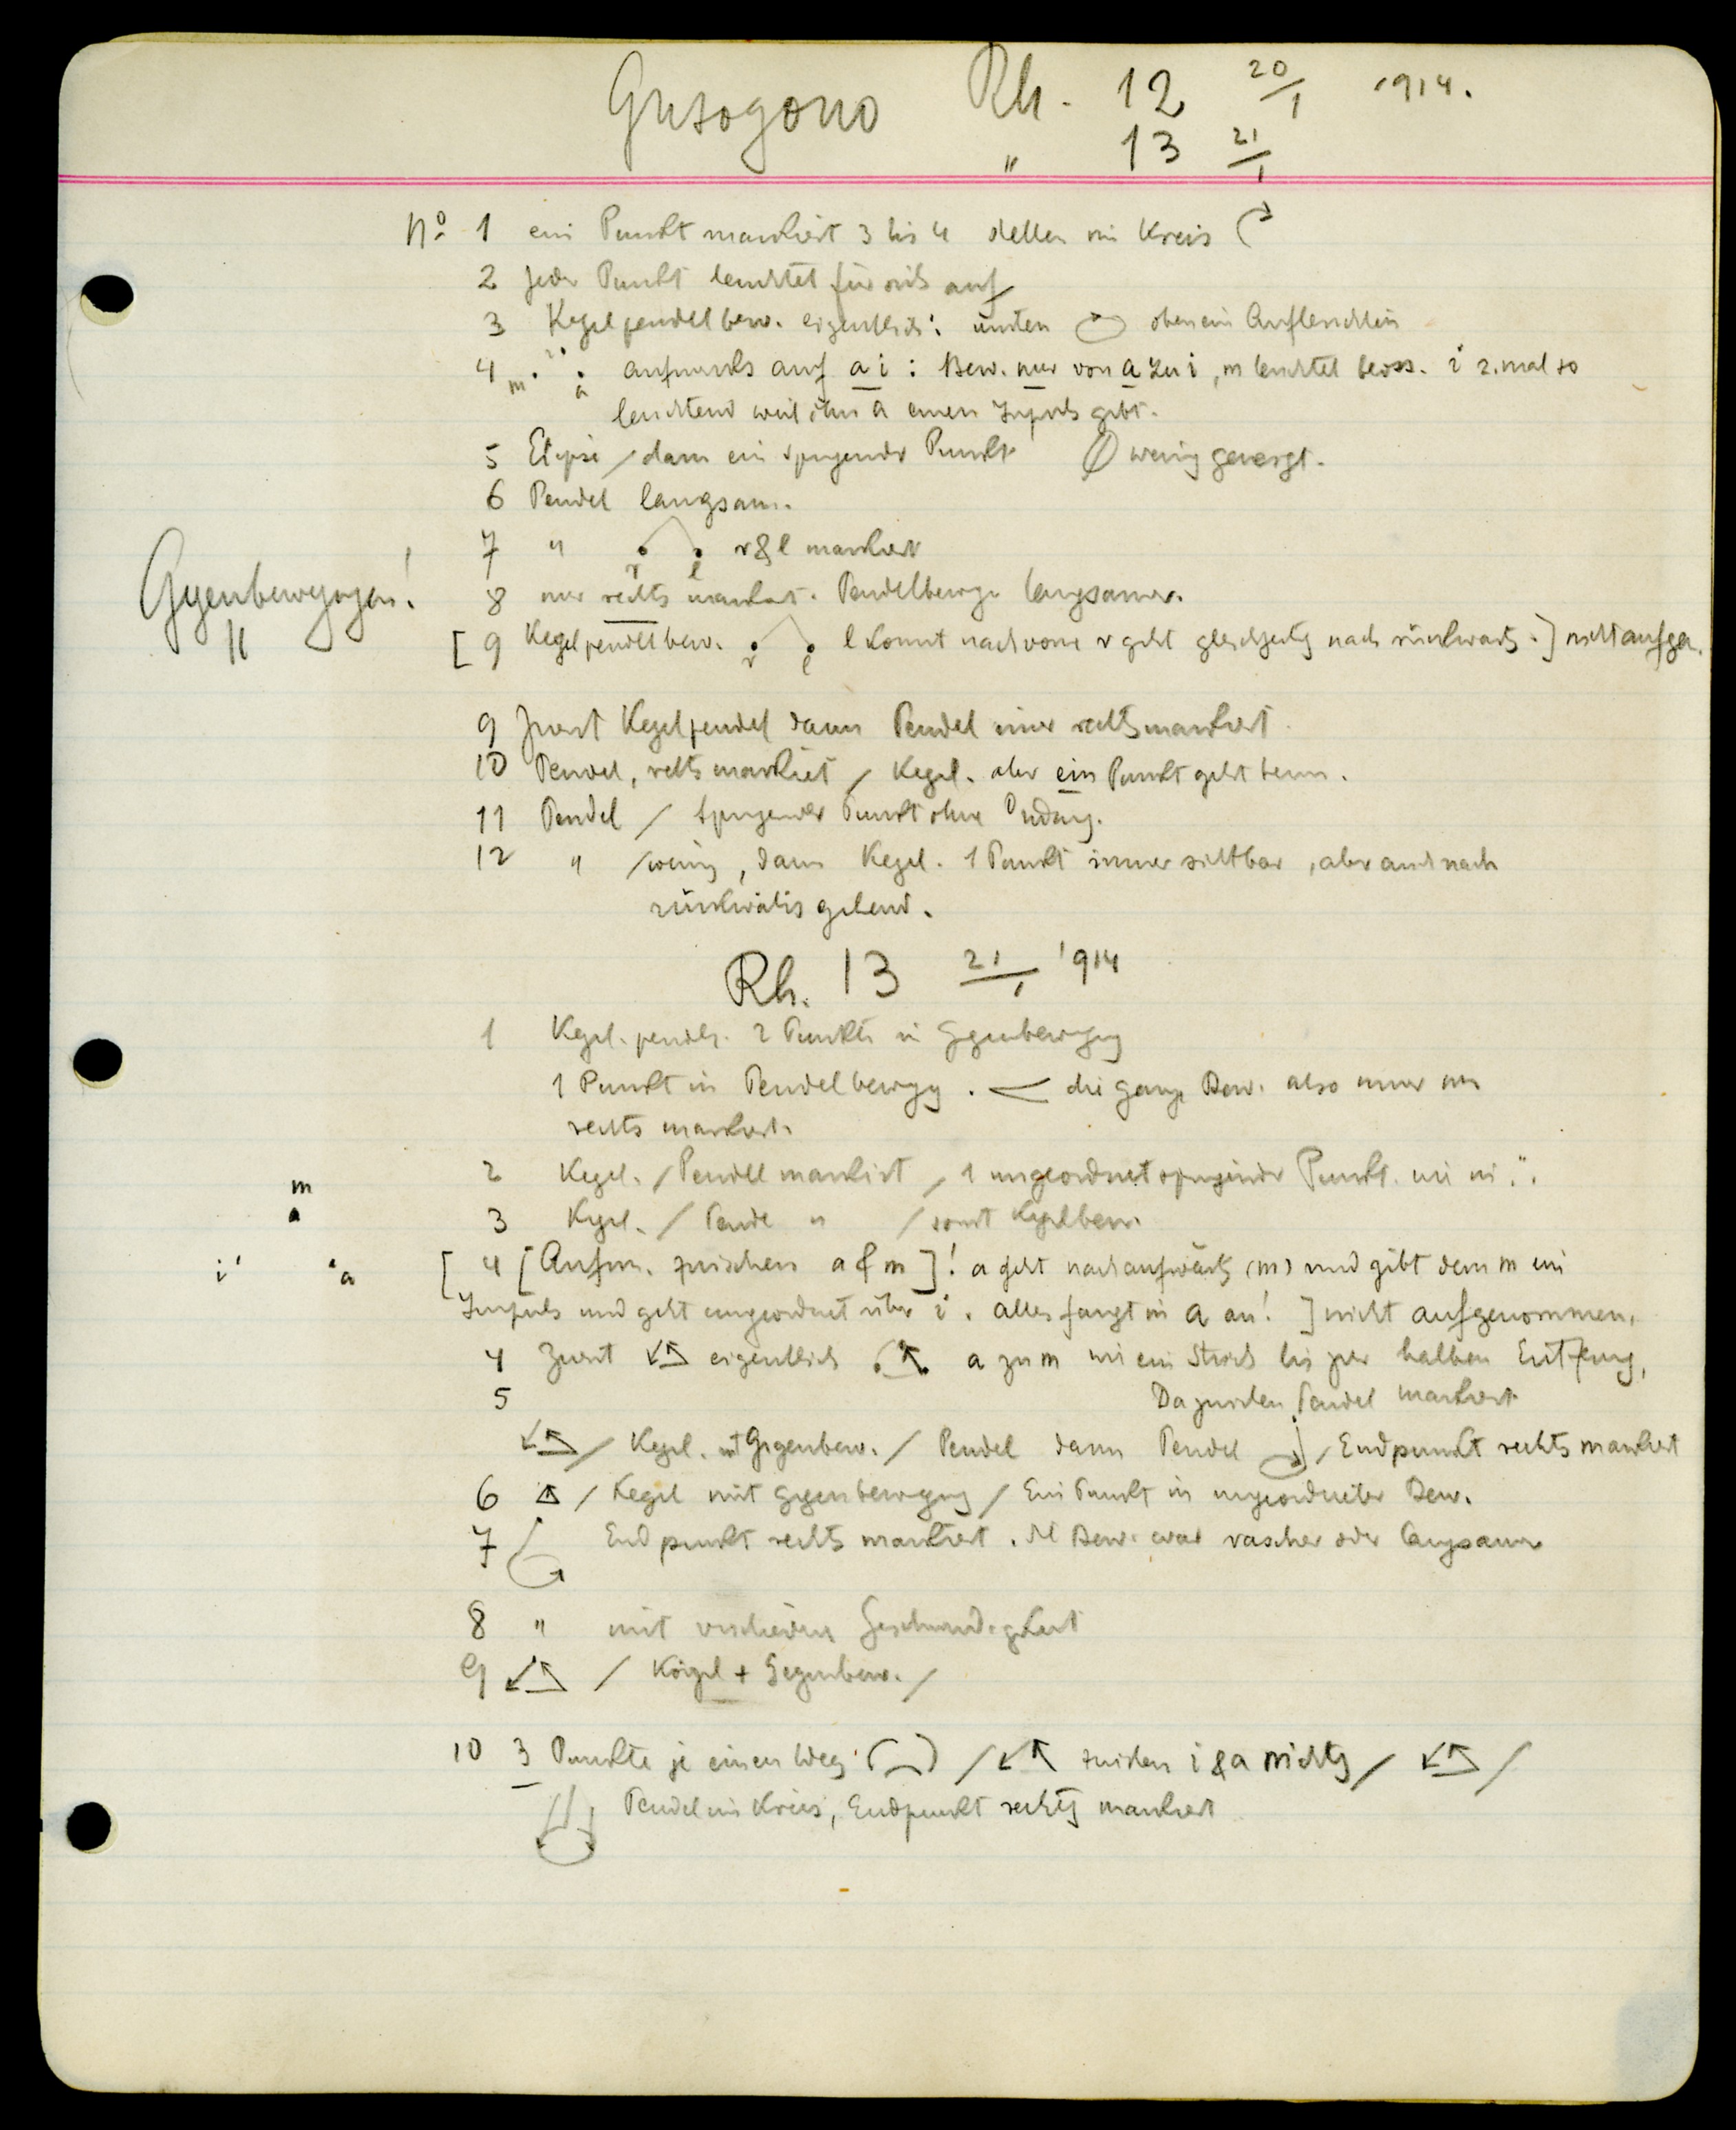 Rh. 12 20/1 1914.
" 13 21/1
No 1 ein Punkt markiert 3 bis 4 stellen im Kreis
2 jeder Punkt leuchtet für sich auf
3 Kegelpendelbew. eigentlich: unten oben ein Aufleuchten
4 m i a aufmerks auf a i : Bew. nur von a zu i, m leuchtet bloss. i 2. mal so
leuchtend weil ihm a einen Impuls gibt.
5 Elipse / dann ein springender Punkt wenig geneigt.
6 Pendel langsam.
7 " r l r & l markiert
Gegenbewegungen!
8 nur rechts markiert. Pendelbewgn langsamer.
[9 Kegelpendelbew. r l l kommt nach vorne r geht gleichzeitig nach rückwärts.] nicht aufge.
9 zuerst Kegelpendel dann Pendel immer rechts markiert
10 Pendel, rechts markiert / Kegel. aber ein Punkt geht herum.
11 Pendel / springender Punkt ohne
12 " / wenig, dann Kegel. 1 Punkt immer sichtbar, aber auch nach
rückwärts gehend.
Rh. 13 21/1 1914
1 Kegel. pendel. 2 Punkte in Gegenbewegung
1 Punkt in Pendelbewgg. die ganze Bew. also nur
rechts markiert.
2 Kegel. / Pendel markirt / 1 ungeordnet springender Punkt.
m
a
3 Kegel. / Pendel " / sonst Kegelbew.
i a
[4 [Aufm. zwischen a & m]! a geht nach aufwärts (m) und gibt dem m ein
Impuls und geht ungeordnet über i. alles fangt in a an! ] nicht aufgenommen.
4 Zuerst eigentlich a zu m wie ein Strich bis zur halben Entfeng,
5 Dazwischen Pendel markiert
/ Kegel. mit Gegenbew. / Pendel dann Pendel / Endpunkt rechts markiert
6 / Kegel mit gegenbewegung / Ein Punkt in ungeordneter Bew.
7 Endpunkt rechts markiert. die Bew. war rascher oder langsamer
8 " mit verschiedene Geschwindigkeit
9 / Kegel + Gegenbew. /
10 3 Punkte je einen Weg / zwischen i & a nichts / /
Pendel im Kreis, Endpunkt rechts markiert